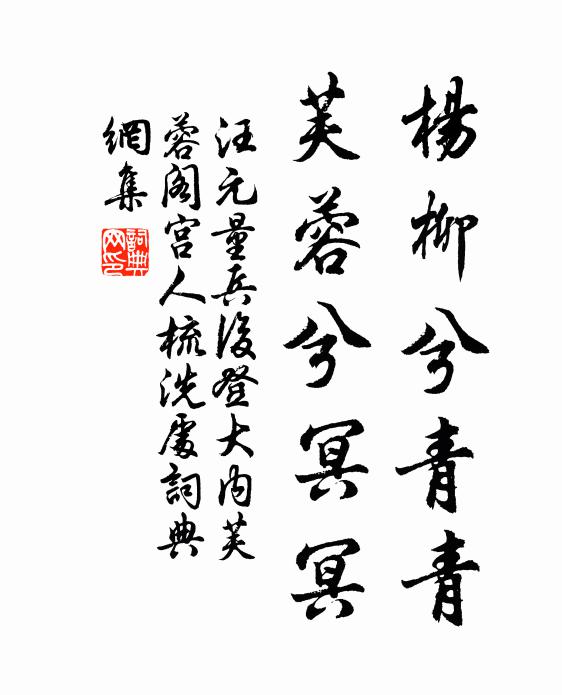 楊柳兮青青
芙蓉兮冥冥
汪元量兵後登大內芙
蓉閣宮人梳洗處詞典
網集
詞典
网印